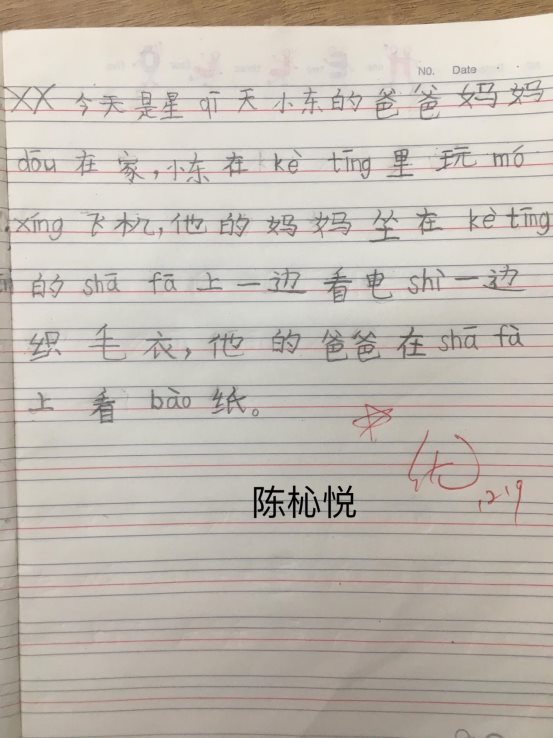 No. Date
XX 今天是星 qī 天 小东的爸爸妈妈
dōu 在家,小东在 kè tīng 里玩 mó
xíng 飞机,他的妈妈坐在 kè tīng
的 shā fā 上一边看电 shì 一边
织毛衣,他的爸爸在 shā fà
上看 bào 纸。
优
12.19
陈杺悦